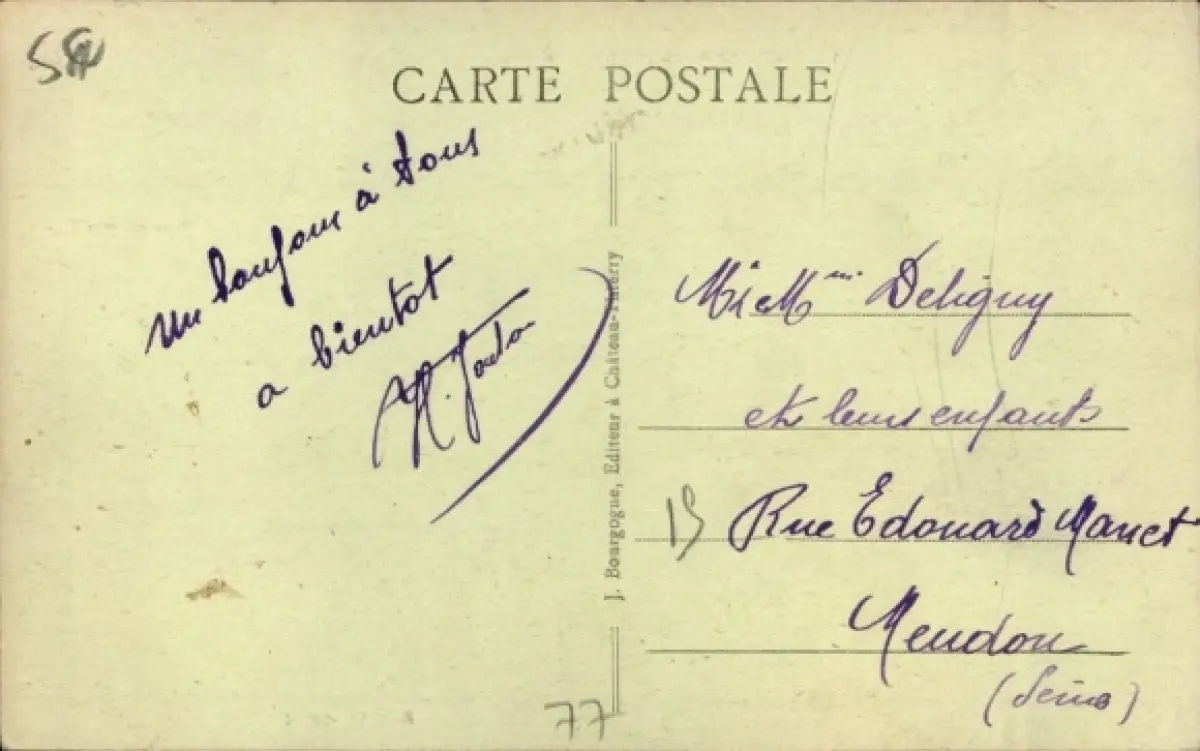 CARTE POSTALE
un bonjour à tous
a bientot
J. Bourgogne, Editeur à Château-Thierry
M. et Mme Deligny
et leurs enfants
15 Rue Edouard Manet
Meudon
(Seine)
77